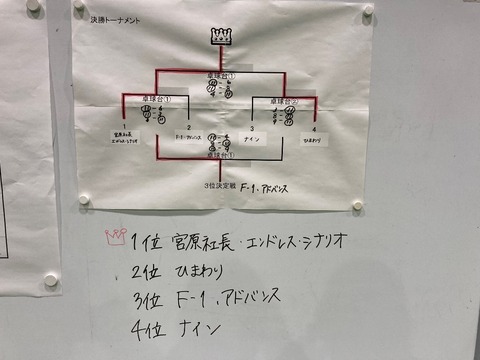 決勝トーナメント
卓球台①
卓球台①
卓球台②
宮原社長
エンドレス・シナリオ
2
F-1・アドバンス
3
ナイン
4
ひまわり
卓球台①
3位決定戦 F-1、アドバンス
1位 宮原社長・エンドレス・シナリオ
2位 ひまわり
3位 F-1、アドバンス
4位 ナイン